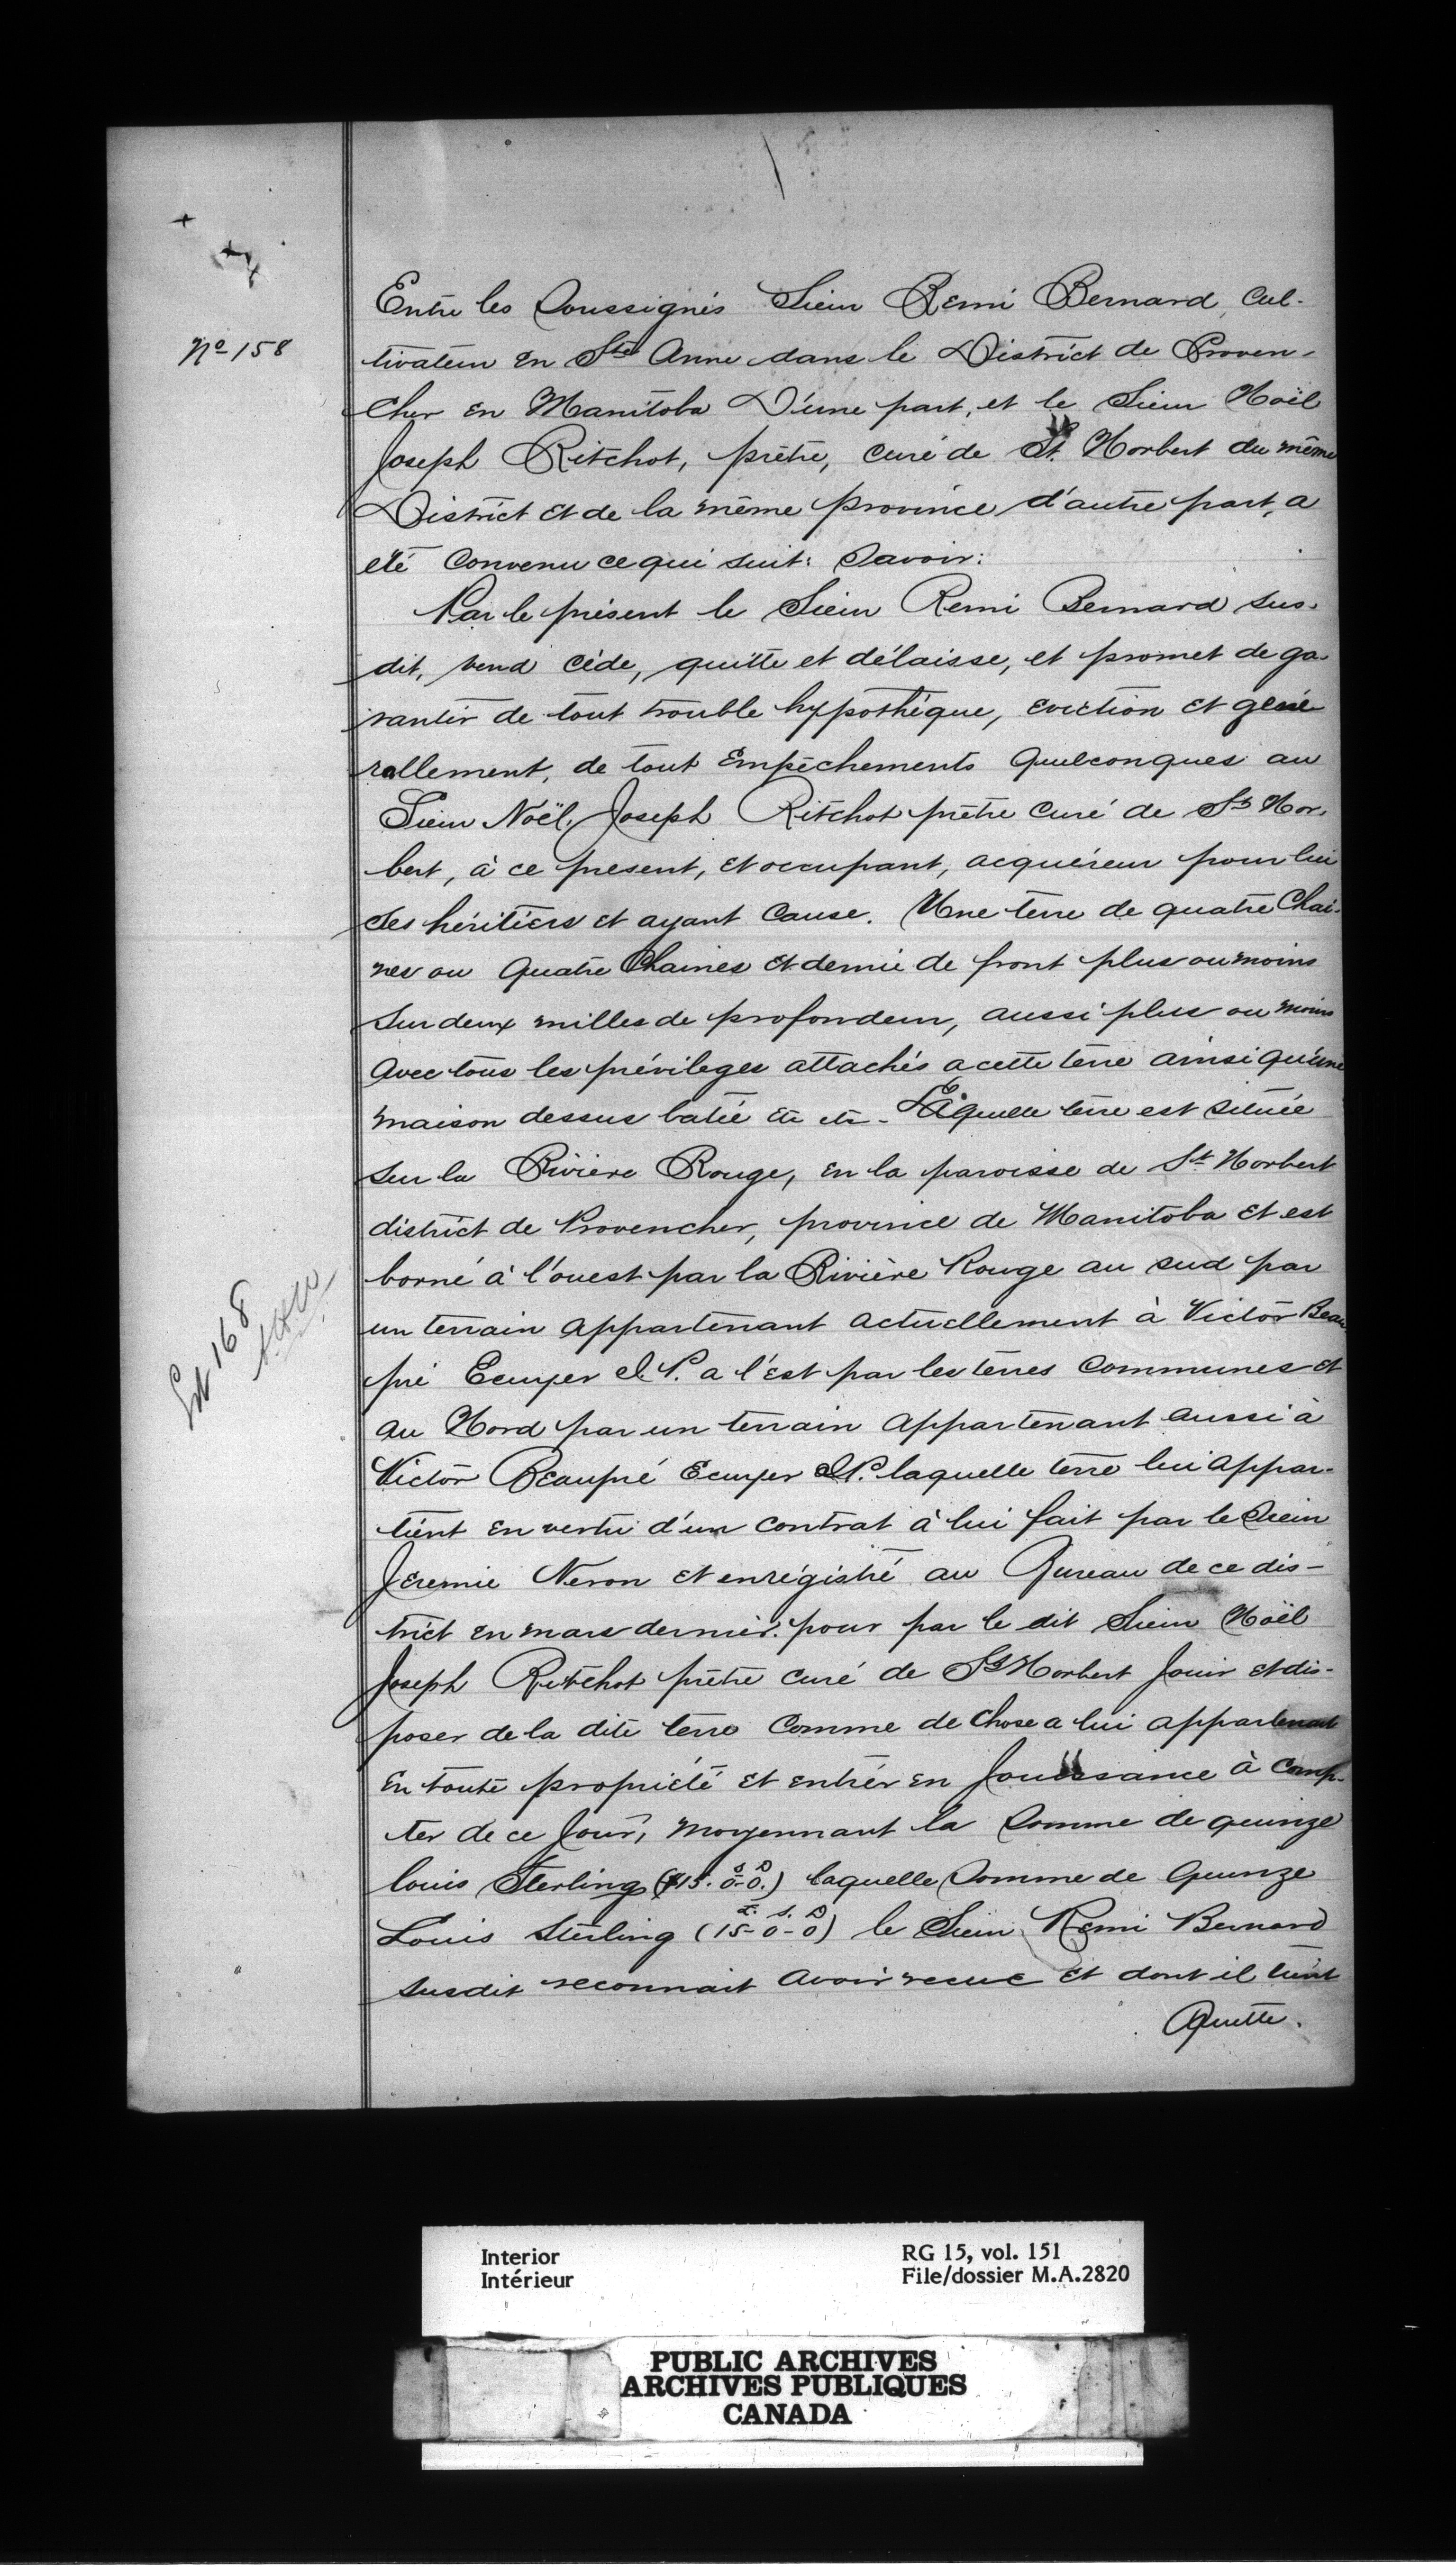 Nº 158
Entre les Soussignés Sieur Remi Bernard, Cul-
tivateur en Ste Anne dans le District de Proven-
cher en Manitoba D'une part, et le Sieur Noël
Joseph Ritchot, prêtre, curé de St. Norbert du même
District et de la même province d'autre part, a
été Convenu ce qui suit: Savoir:
Par le présent le Sieur Remi Bernard sus-
dit, vend cède, quitte et délaisse, et promet de ga-
rantir de tout trouble hypothèque, eviction et géné
rallement, de tout Empêchements Quelconques au
Sieur Noël. Joseph Ritchot prêtre Curé de St Nor-
bert, à ce present, et occupant, acquéreur pour lui
ses héritiers et ayant Cause. Une terre de quatre Chai-
nes ou Quatre Chaines et demie de front plus ou moins
sur deux milles de profondeur, aussi plus ou moins
Avec tous les prévileges attachés a cette terre ainsi qu'une
maison dessus batie etc etc - Laquelle terre est située
sur la Rivière Rouge, en la paroisse de St Norbert
district de Provencher, province de Manitoba et est
borné à l'ouest par la Rivière Rouge au sud par
un terrain appartenant actuellement à Victor Beau
pré Ecuyer J. P. a l'Est par les terres Communes et
Au Nord par un terrain appartenant aussi à
Victor Beaupré Ecuyer J.P. laquelle terre lui appar-
tient en vertu d'un contrat à lui fait par le Sieur
Jeremie Neron et enrégistré au Bureau de ce dis-
trict en mars dernier. pour par le dit Sieur Noël
Joseph Ritchot prêtre curé de St Norbert Jouir et dis-
poser de la dite terre Comme de Chose a lui appartenant
En toute propriété et entrér en Jouissance à Comp-
ter de ce Jour, moyennant la Somme de quinze
louis Sterling (£15. 0-0.) laquelle Somme de Quinze
S D
Louis Sterling (15-0-0) le Sieur Remi Bernard
£. S. D
susdit reconnait Avoir recue et dont il tient
Quitte.
Lot 168
Interior
Intérieur
RG 15, vol. 151
File/dossier M.A.2820
PUBLIC ARCHIVES
ARCHIVES PUBLIQUES
CANADA